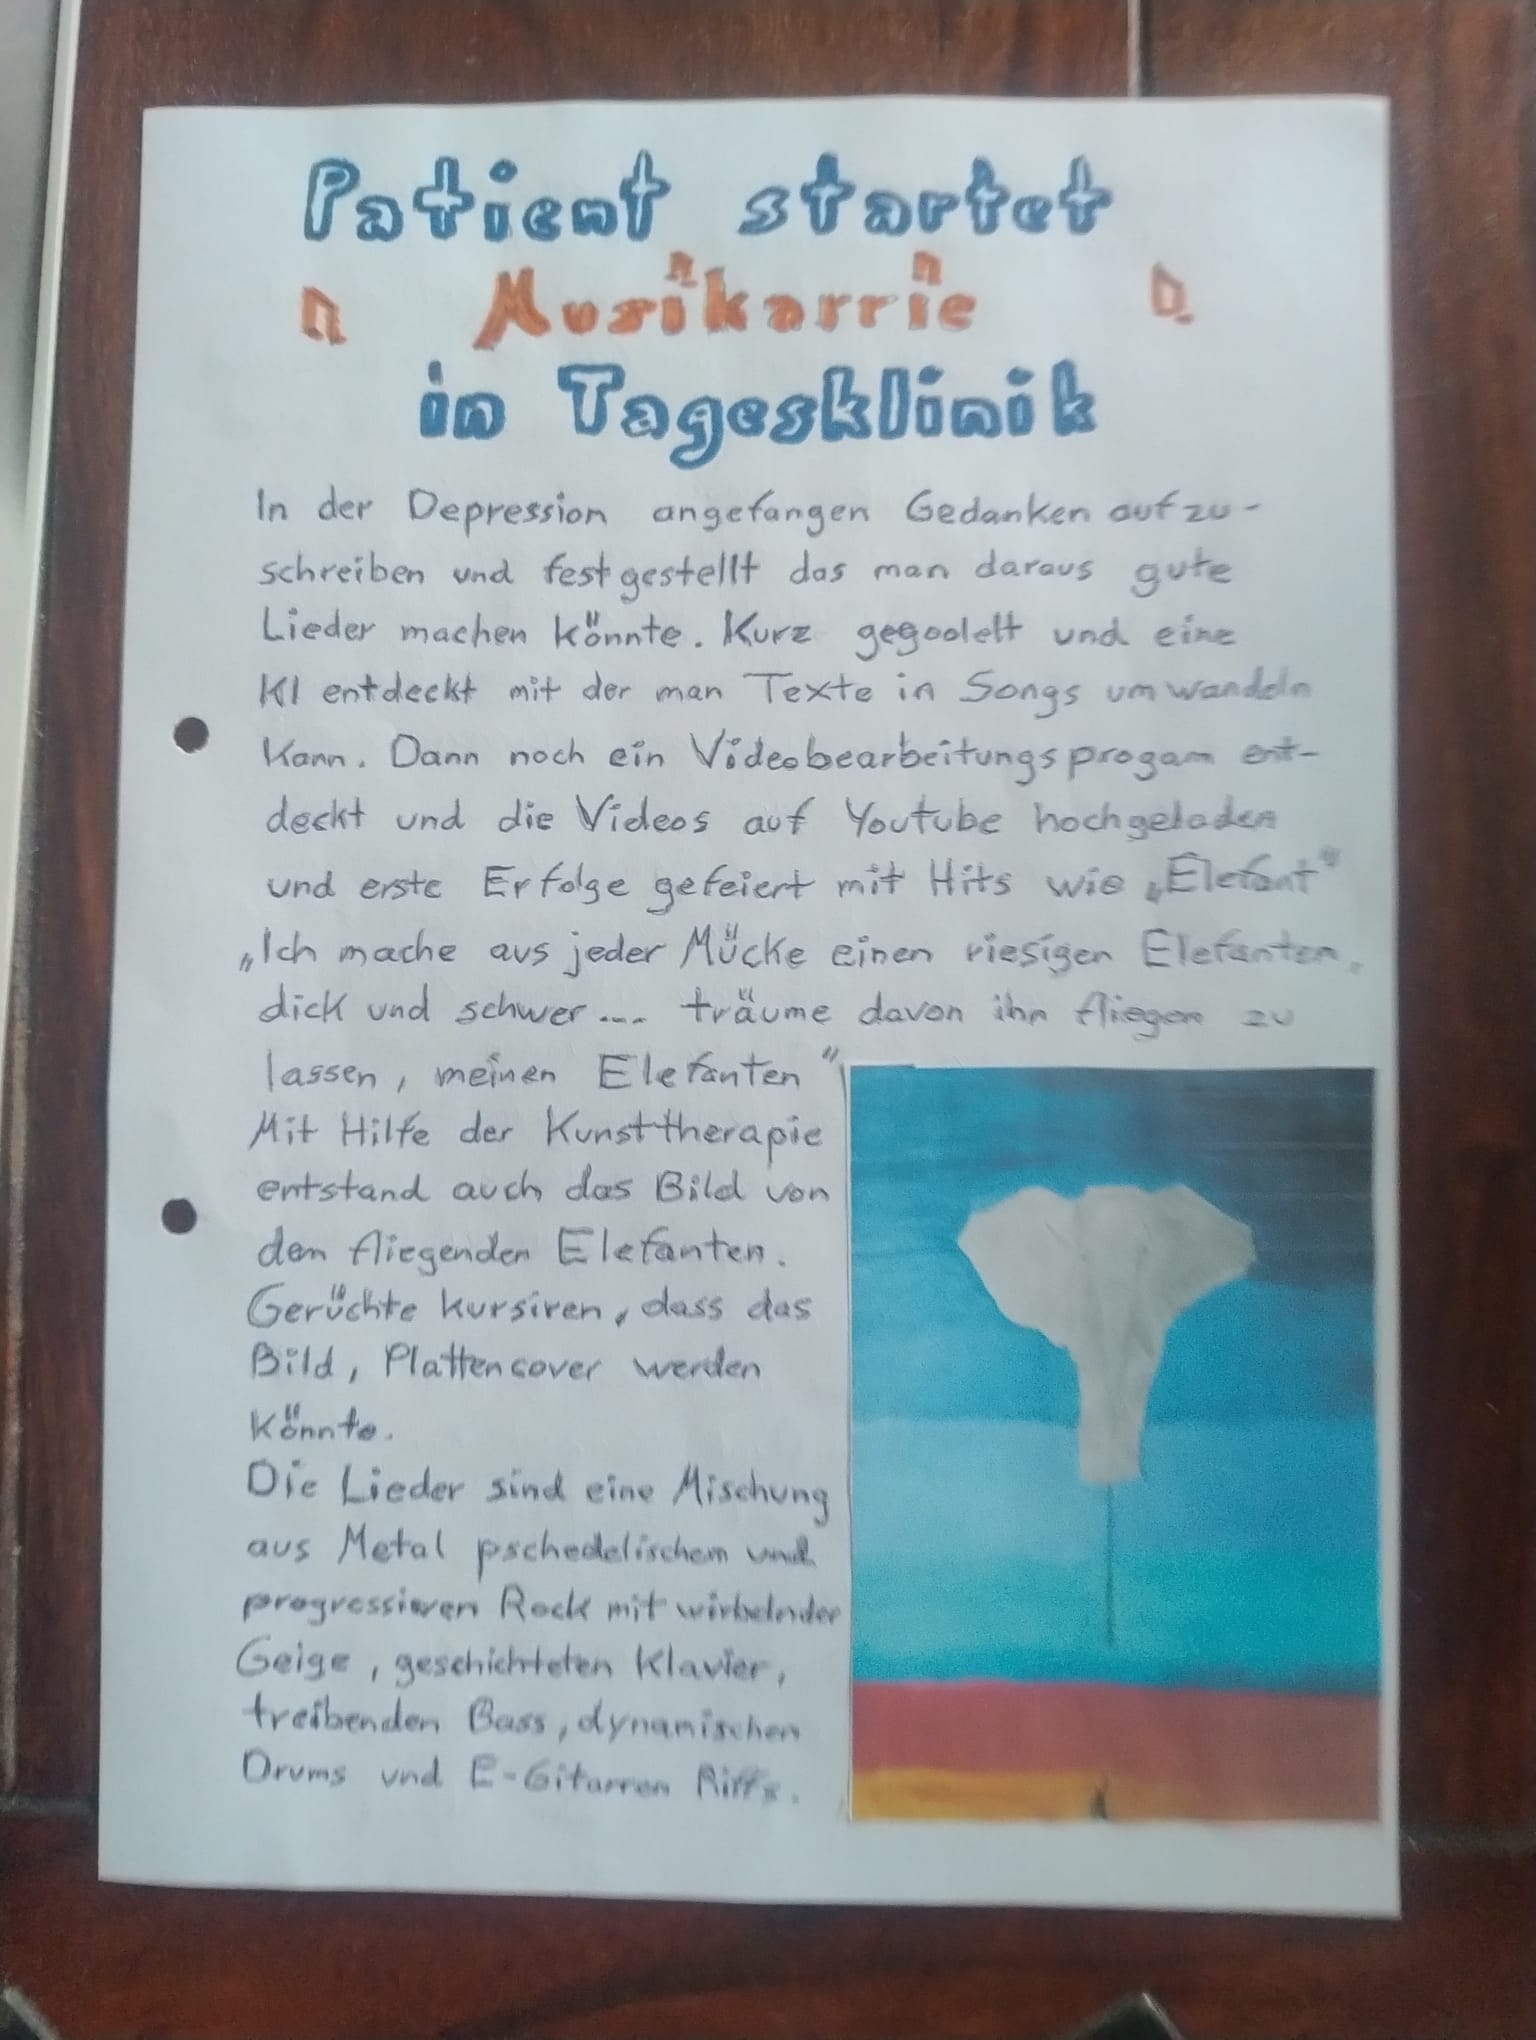 Patient startet
Musikarrie
in Tagesklinik
In der Depression angefangen Gedanken aufzu-
schreiben und festgestellt das man daraus gute
Lieder machen könnte. Kurz gegoolelt und eine
KI entdeckt mit der man Texte in Songs umwandeln
kann. Dann noch ein Videobearbeitungsprogam ent-
deckt und die Videos auf Youtube hochgeladen
und erste Erfolge gefeiert mit Hits wie „Elefant"
„Ich mache aus jeder Mücke einen riesigen Elefanten,
dick und schwer... träume davon ihn fliegen zu
lassen, meinen Elefanten"
Mit Hilfe der Kunsttherapie
entstand auch das Bild von
dem fliegenden Elefanten.
Gerüchte kursiren, dass das
Bild, Plattencover werden
könnte.
Die Lieder sind eine Mischung
aus Metal pschedelischem und
progressiven Rock mit wirbelnder
Geige, geschichteten Klavier,
treibenden Bass, dynamischen
Drums und E-Gitarren Riffs.